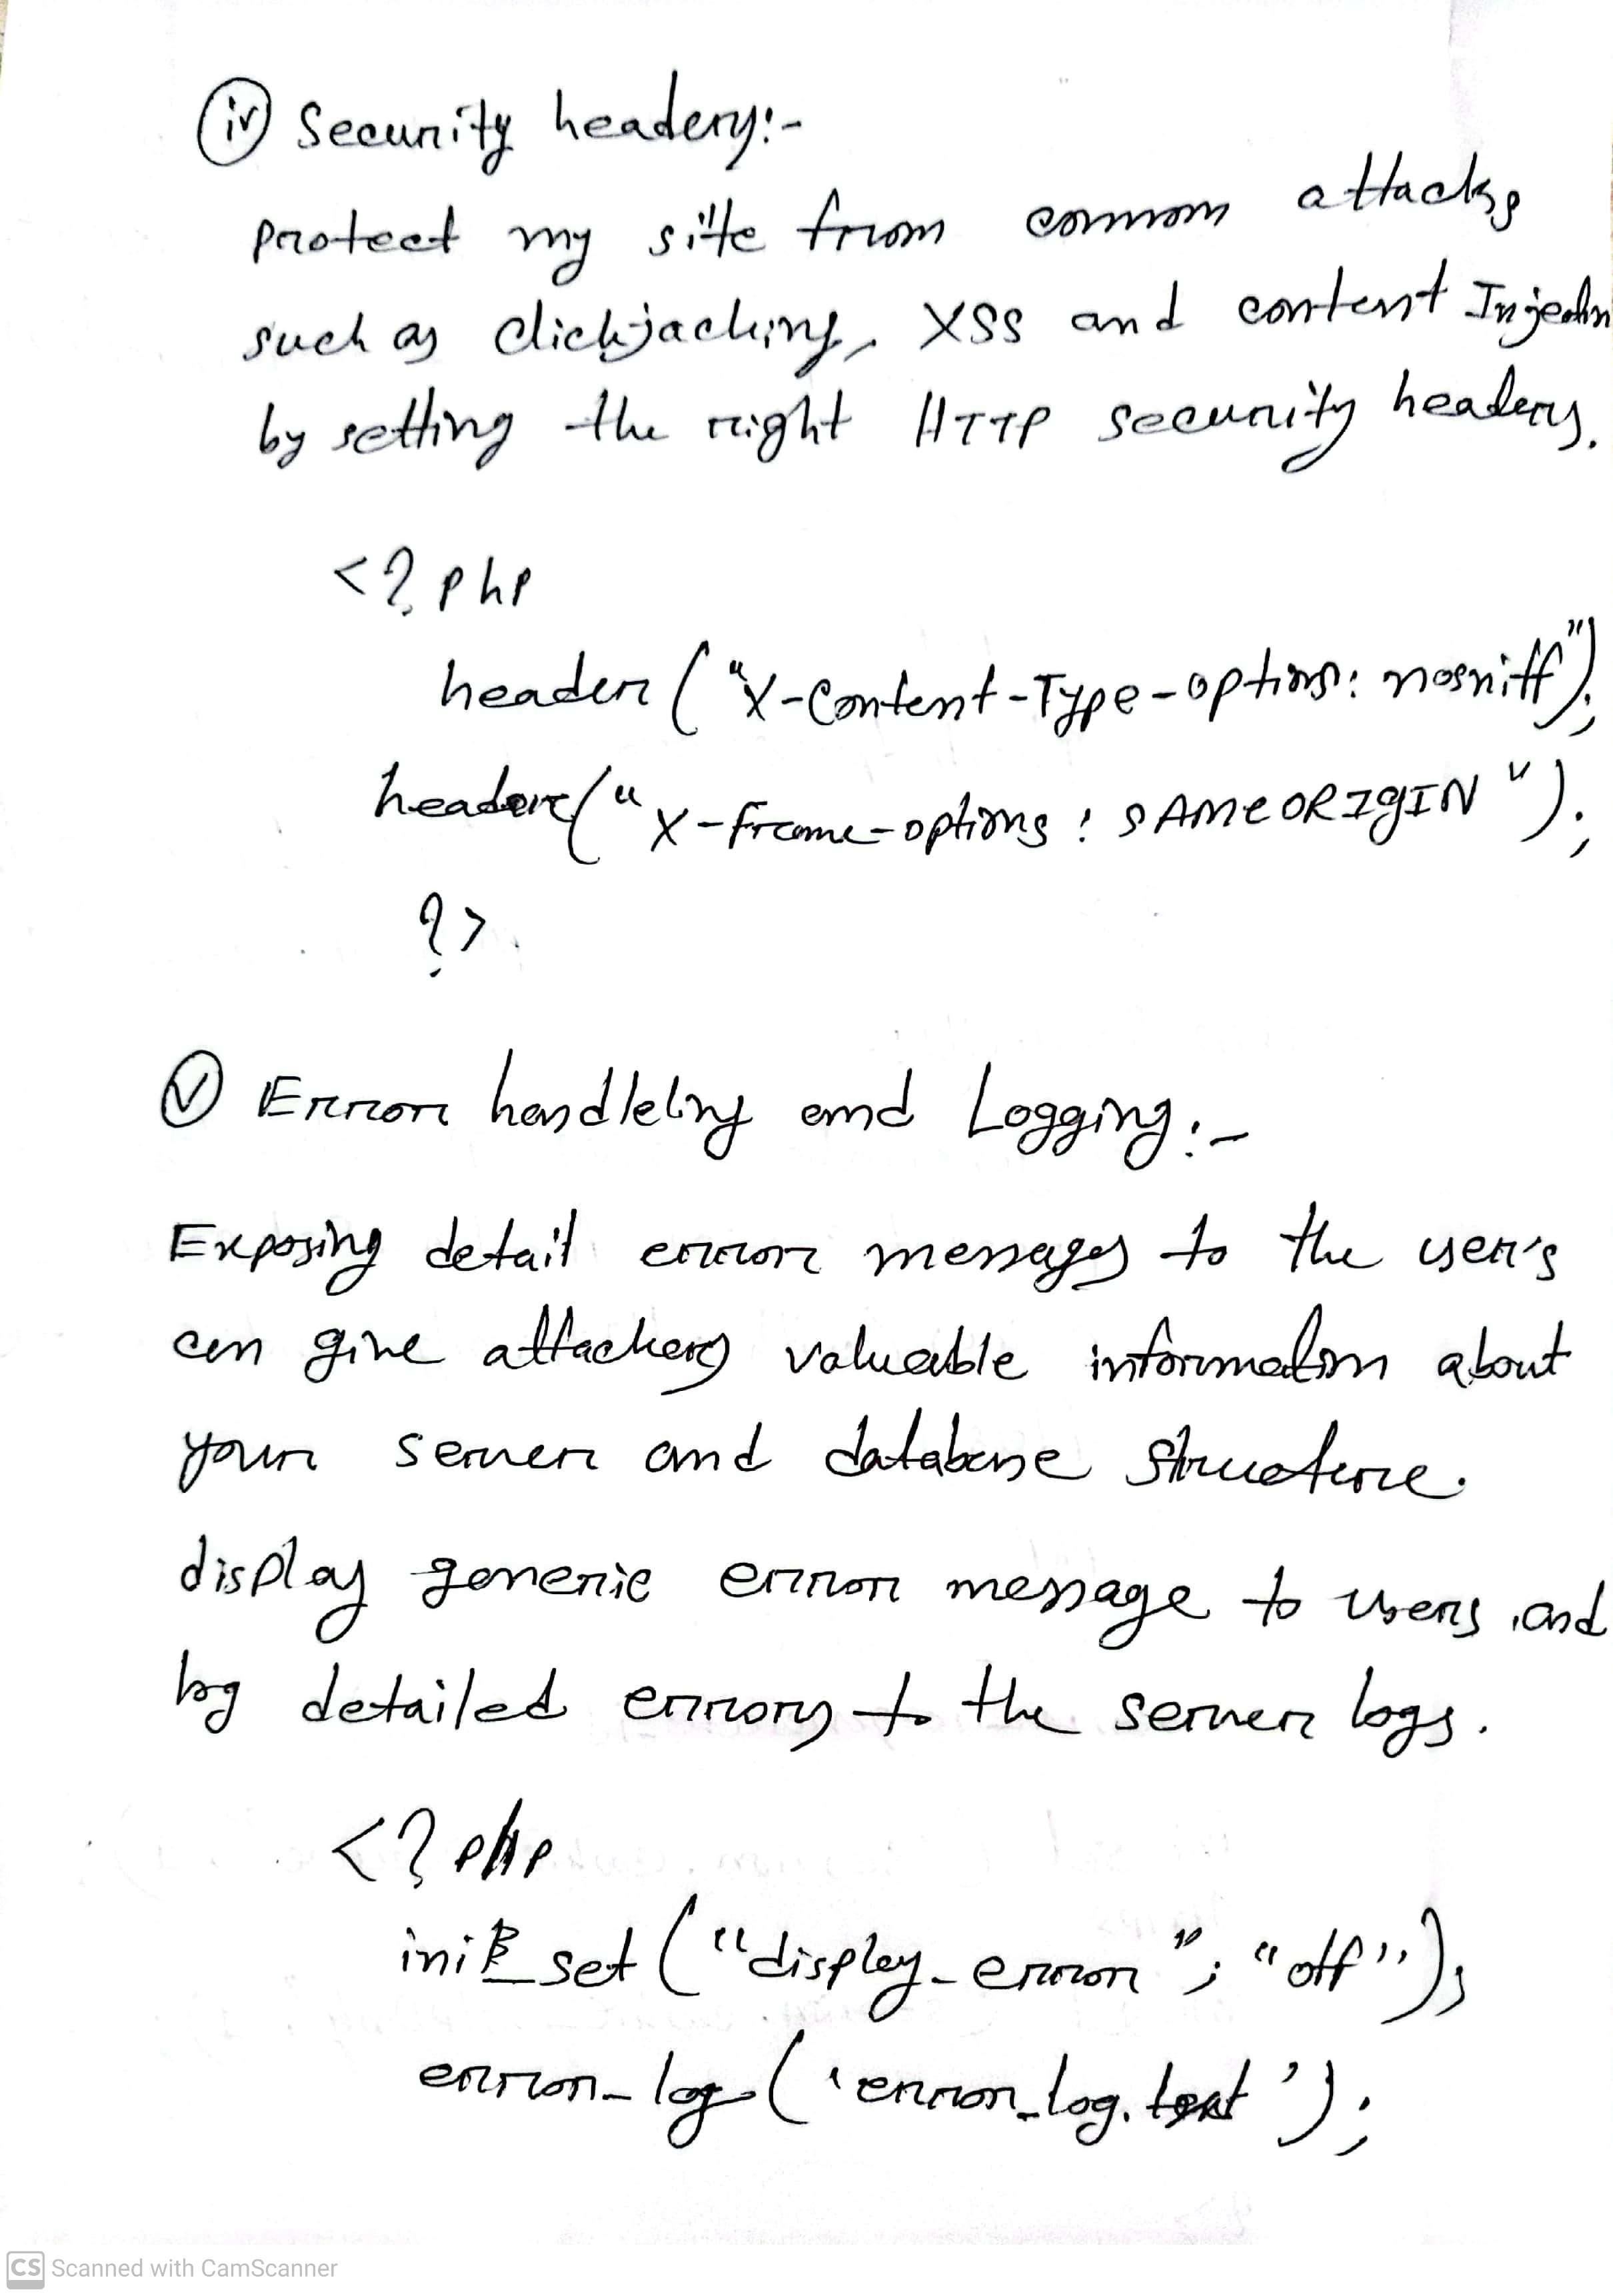 (iv) Security headers:-
protect my site from common attacks
such as clickjacking, XSS and content Injection
by setting the right HTTP security headers.
<?php
header ("X-Content-Type-options: nosniff");
header("X-Frame-options: SAMEORIGIN");
?>
(v) Error handleling and Logging:-
Exposing detail error messages to the user's
can give attackers valuable information about
your server and database structure.
display generic error message to users and
log detailed errors to the server logs.
<?php
ini_set ("display_error"; "off");
error_log ('error_log.text');
CS Scanned with CamScanner